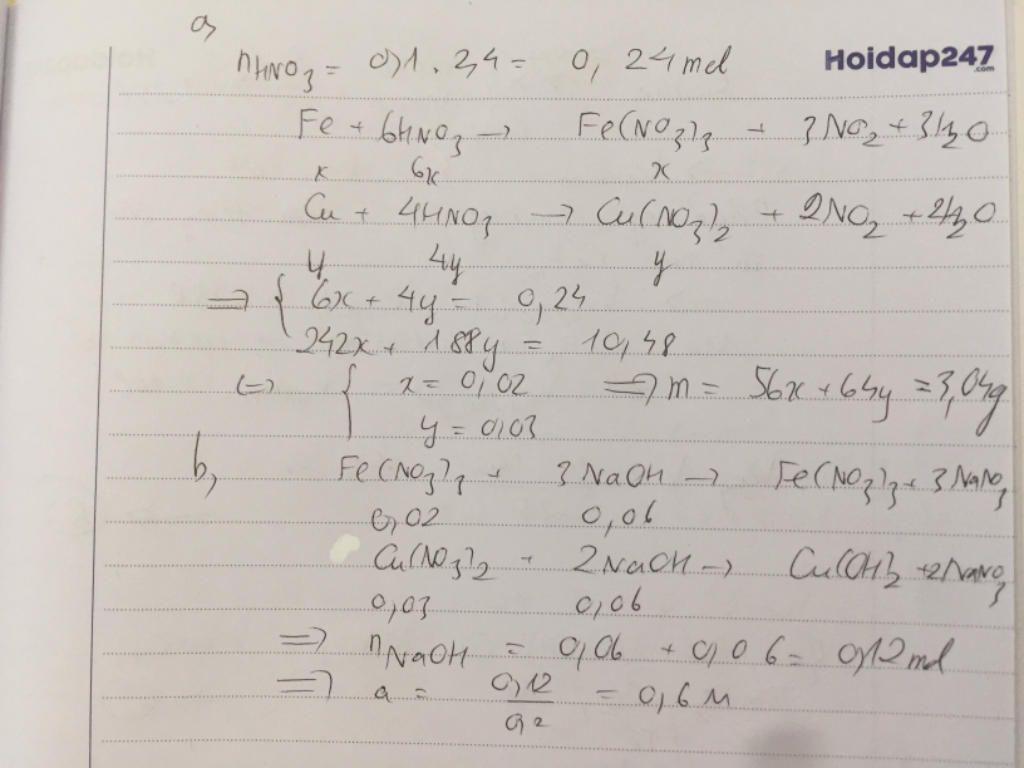 a,
nHNO3 = 0,1 . 2,4 = 0, 24 mol
Hoidap247
.com
Fe + 6HNO3 → Fe(NO3)3 + 3NO2 + 3H2O
x 6x x
Cu + 4HNO3 → Cu(NO3)2 + 2NO2 + 2H2O
y 4y y
=> { 6x + 4y = 0,24
242x + 188y = 10,48
(=) { x = 0,02 => m = 56x + 64y = 3,04g
y = 0,03
b, Fe(NO3)3 + 3NaOH → Fe(NO3)3 + 3NaNO3
0,02 0,06
Cu(NO3)2 + 2NaOH → Cu(OH)2 + 2NaNO3
0,03 0,06
=> nNaOH = 0,06 + 0,06 = 0,12 mol
=> a = 0,12/0,2 = 0,6 M